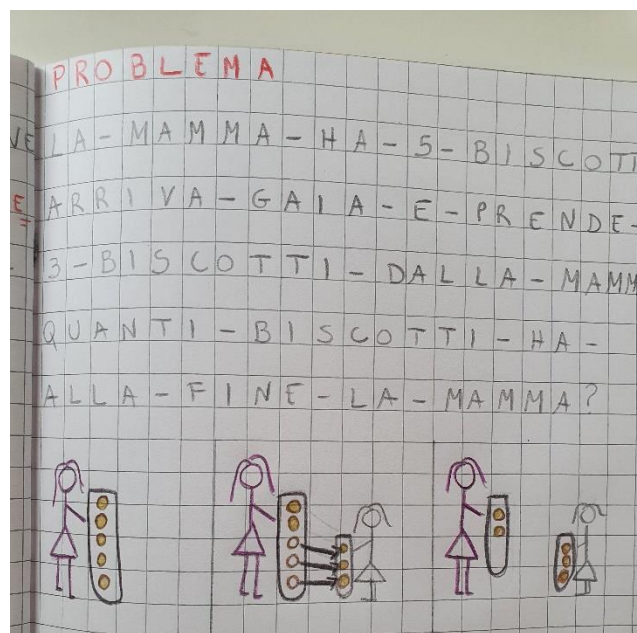 PROBLEMA
LA-MAMMA-HA-5-BISCOTT
ARRIVA-GAIA-E-PRENDE-
3-BISCOTTI-DALLA-MAMM
QUANTI-BISCOTTI-HA-
ALLA-FINE-LA-MAMMA?